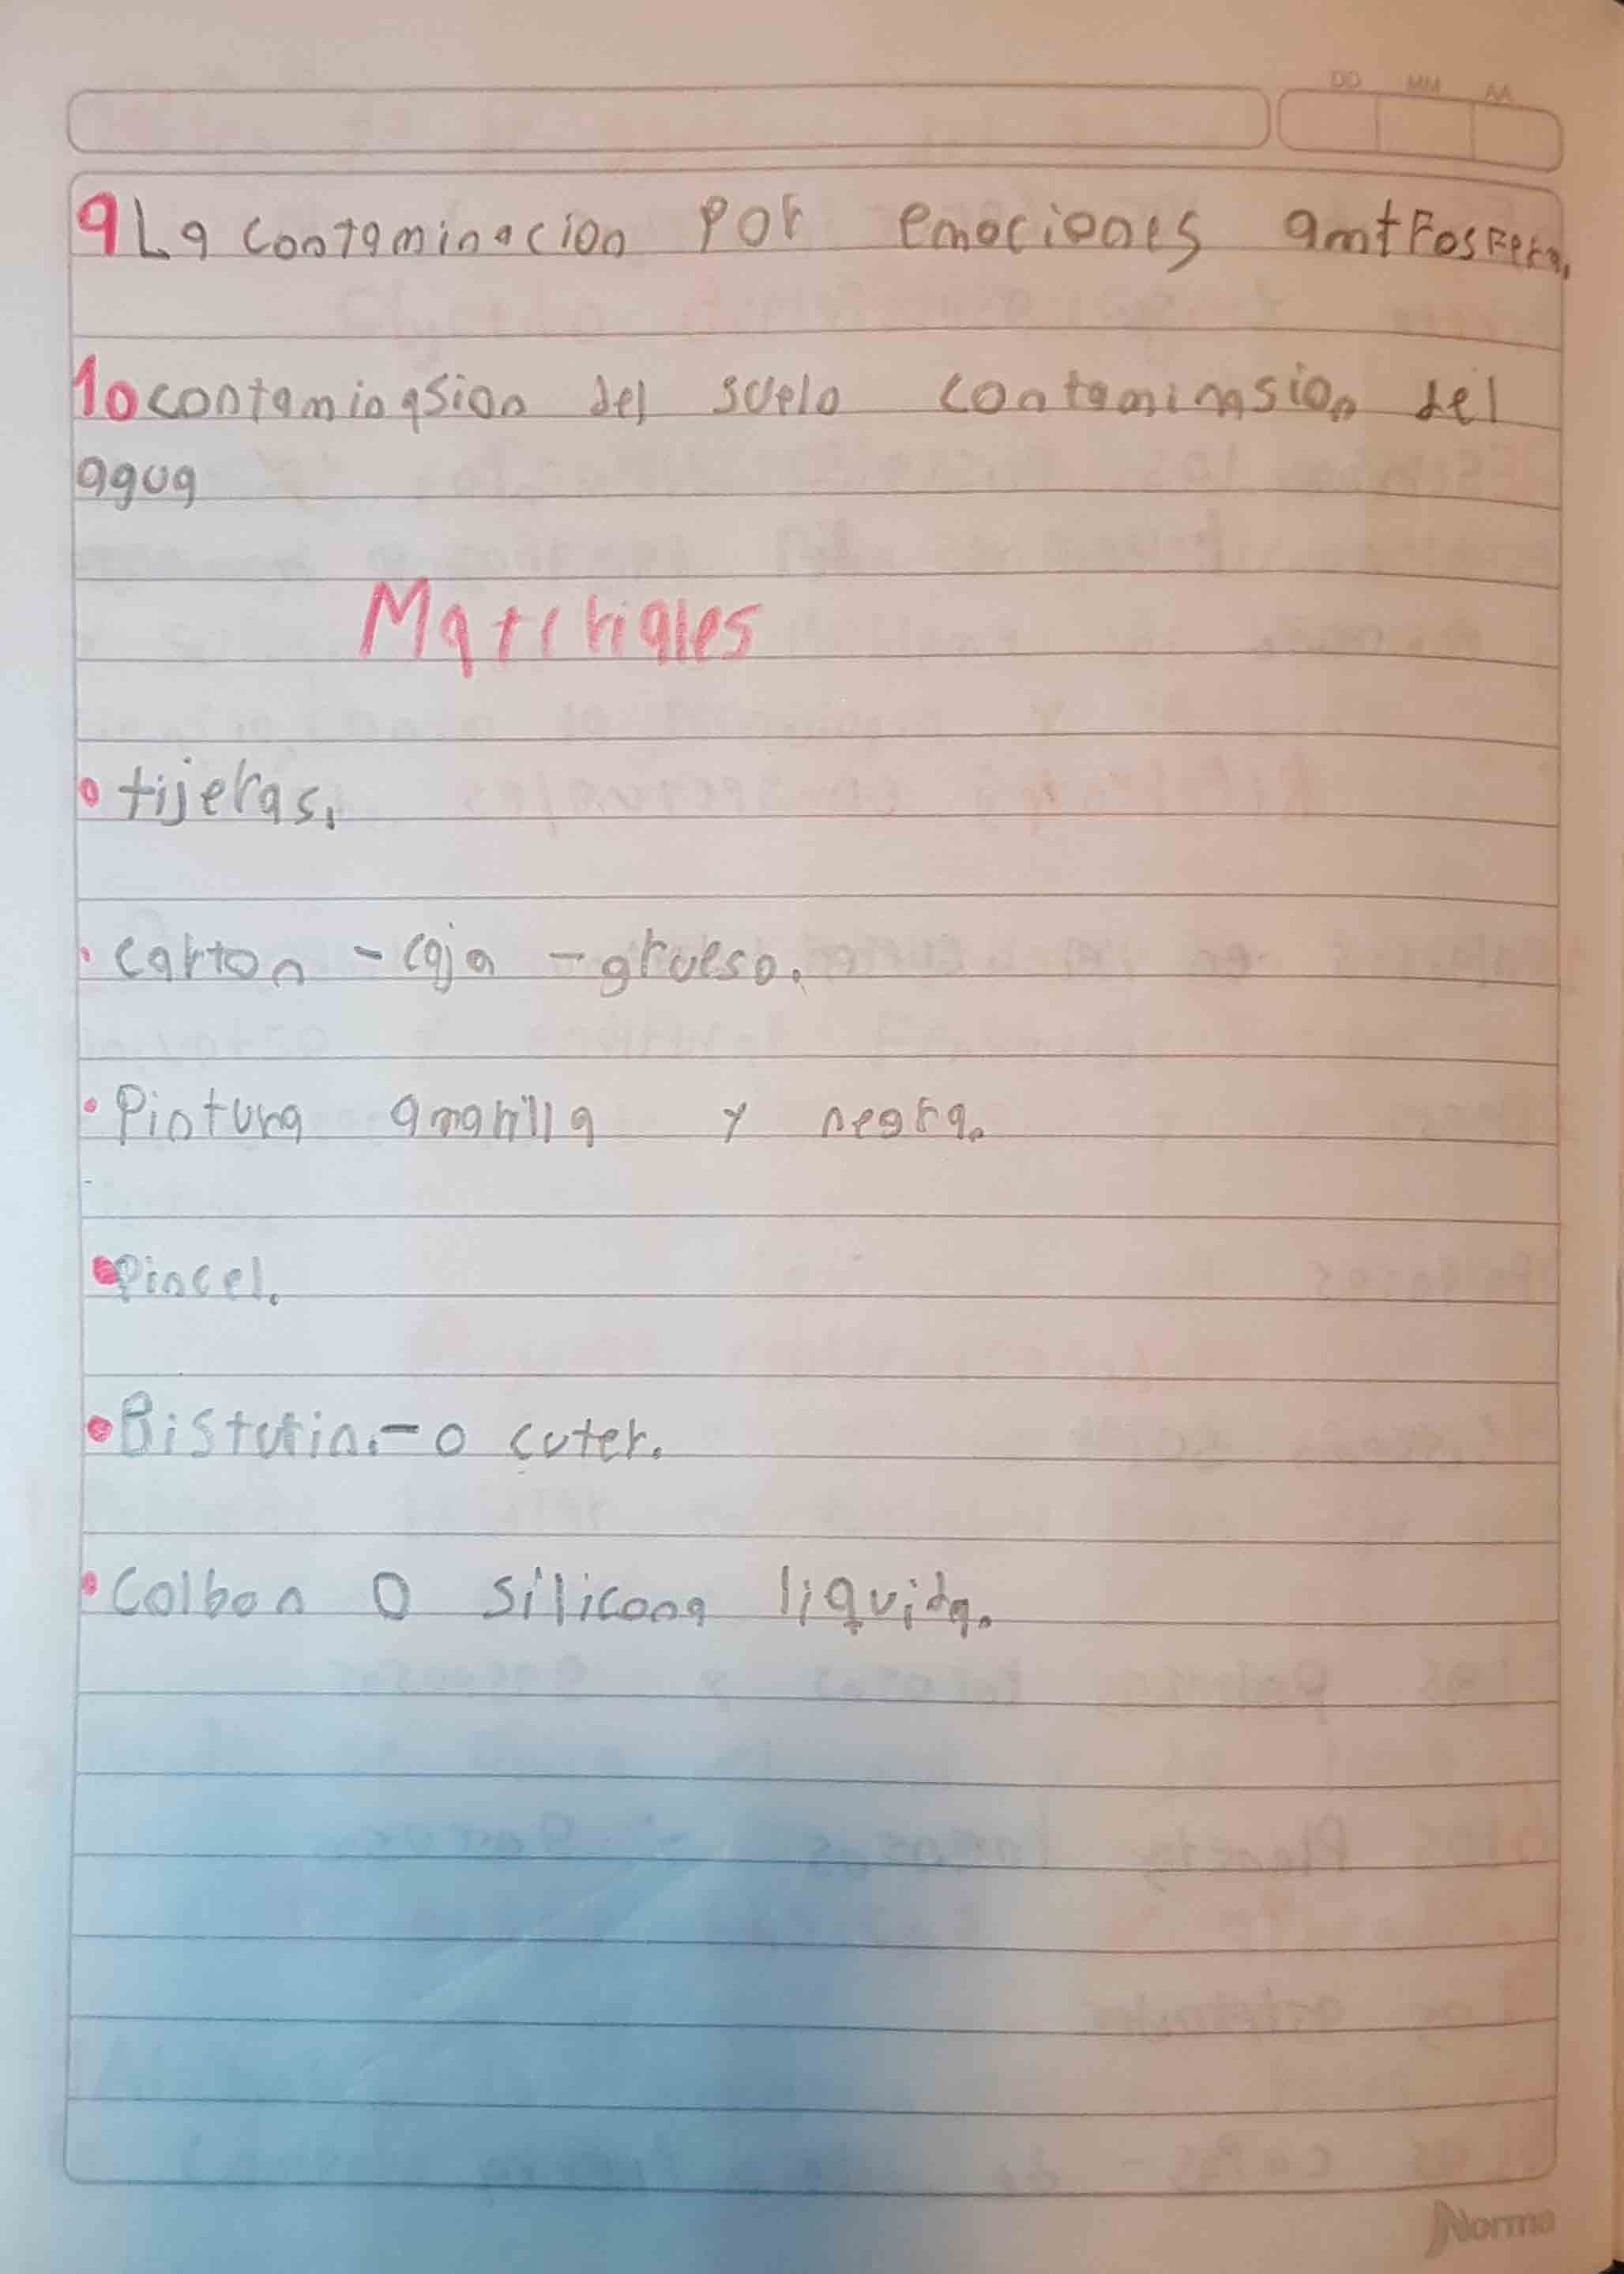 DD MM AA
9 La contaminacion por emociones amtFosFera.
10 contaminasion del suelo contaminasion del
agua
Materiales
• tijeras.
• carton - caja - grueso.
• Pintura amarilla y negra.
• Pincel.
• Bisturin. - o cuter.
• Colbon o silicona liquida.
Norma